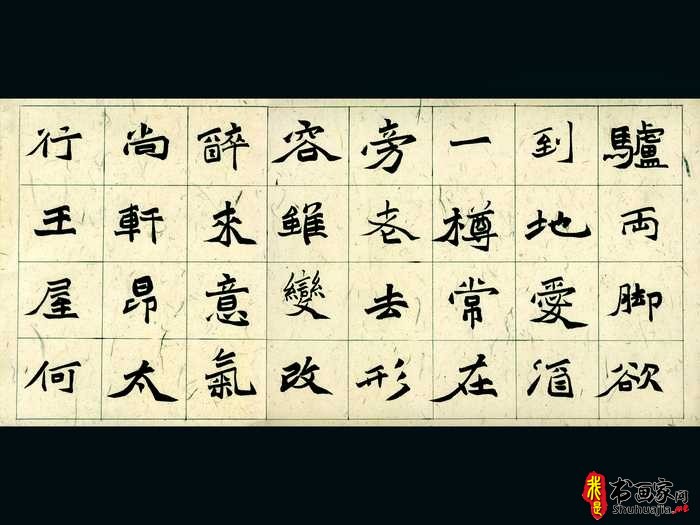 驢両脚欲
到地愛酒
一樽常在
旁老去形
容雖變改
醉来意氣
尚軒昂太
行王屋何
我是书画家网
Shuhuajia.net